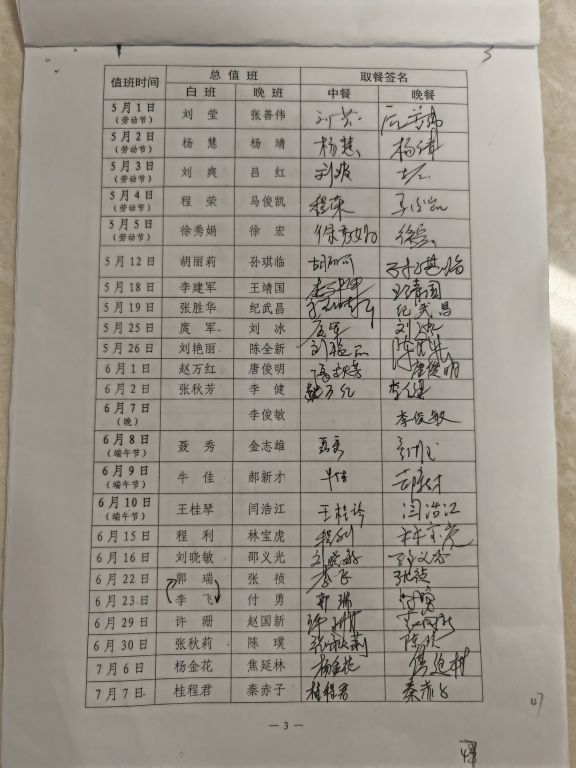 值班时间 总值班 取餐签名
白班 晚班 中餐 晚餐
5月1日 刘莹 张善伟
(劳动节)
5月2日 杨慧 杨靖 杨慧 杨靖
(劳动节)
5月3日 刘爽 吕红 刘爽
(劳动节)
5月4日 程荣 马俊凯 程荣
(劳动节)
5月5日 徐秀娟 徐宏 徐秀娟 徐宏
(劳动节)
5月12日 胡丽莉 孙琪临
5月18日 李建军 王靖国 王靖国
5月19日 张胜华 纪武昌 纪武昌
5月25日 庹军 刘冰 刘冰
5月26日 刘艳丽 陈全新
6月1日 赵万红 唐俊明 唐俊明
6月2日 张秋芳 李健 李健
6月7日 李俊敏 李俊敏
(晚)
6月8日 聂秀 金志雄
(端午节)
6月9日 牛佳 郝新才 牛佳
(端午节)
6月10日 王桂琴 闫浩江 闫浩江
(端午节)
6月15日 程利 林宝虎 程利
6月16日 刘晓敏 邵义光
6月22日 郭瑞 张祯 李飞
6月23日 李飞 付勇 郭瑞 付勇
6月29日 许珊 赵国新
6月30日 张秋莉 陈璞 张秋莉
7月6日 杨金花 焦延林 杨金花
7月7日 桂程君 秦赤子 桂程君 秦赤子
— 3 —
47